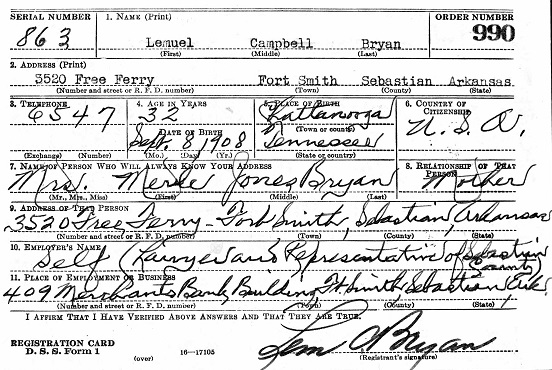 SERIAL NUMBER 1. NAME (Print) ORDER NUMBER
863 Lemuel Campbell Bryan 990
(First) (Middle) (Last)
2. ADDRESS (Print)
3520 Free Ferry Fort Smith Sebastian Arkansas
(Number and street or R. F. D. number) (Town) (County) (State)
3. TELEPHONE 4. AGE IN YEARS 5. PLACE OF BIRTH 6. COUNTRY OF CITIZENSHIP
6547 32 Chattanooga U. S. A.
DATE OF BIRTH (Town or county)
Sept. 8, 1908 Tennessee
(Exchange) (Number) (Mo.) (Day) (Yr.) (State or country)
7. NAME OF PERSON WHO WILL ALWAYS KNOW YOUR ADDRESS 8. RELATIONSHIP OF THAT PERSON
Mrs. Merle Jones Bryan Mother
(Mr., Mrs., Miss) (First) (Middle) (Last)
9. ADDRESS OF THAT PERSON
3520 Free Ferry - Fort Smith, Sebastian, Arkansas
(Number and street or R. F. D. number) (Town) (County) (State)
10. EMPLOYER'S NAME
Self (Lawyer and Representative of Sebastian County)
11. PLACE OF EMPLOYMENT OR BUSINESS
409 Merchants Bank Building, Ft. Smith, Sebastian, Ark.
(Number and street or R. F. D. number) (Town) (County) (State)
I AFFIRM THAT I HAVE VERIFIED ABOVE ANSWERS AND THAT THEY ARE TRUE.
REGISTRATION CARD
D. S. S. Form 1 (over) 16—17105
Lem C Bryan
(Registrant's signature)